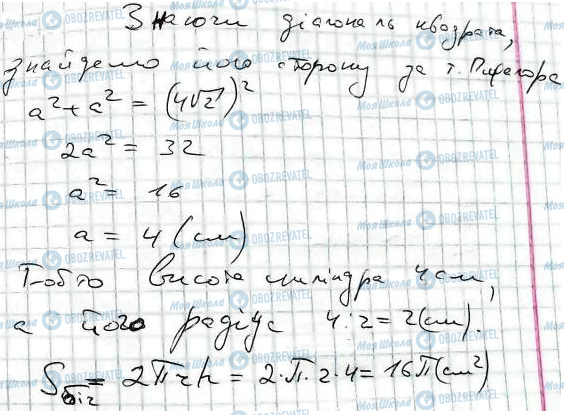 Знаючи діагональ квадрата,
знайдемо його сторону за т. Піфагора
a² + a² = (4√2)²
2a² = 32
a² = 16
a = 4 (см)
Тобто висота циліндра 4 см,
а його радіус 4:2 = 2 (см).
Sбіч = 2πrh = 2·π·2·4 = 16π (см²)